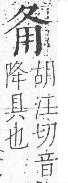 胡注切音
降具也